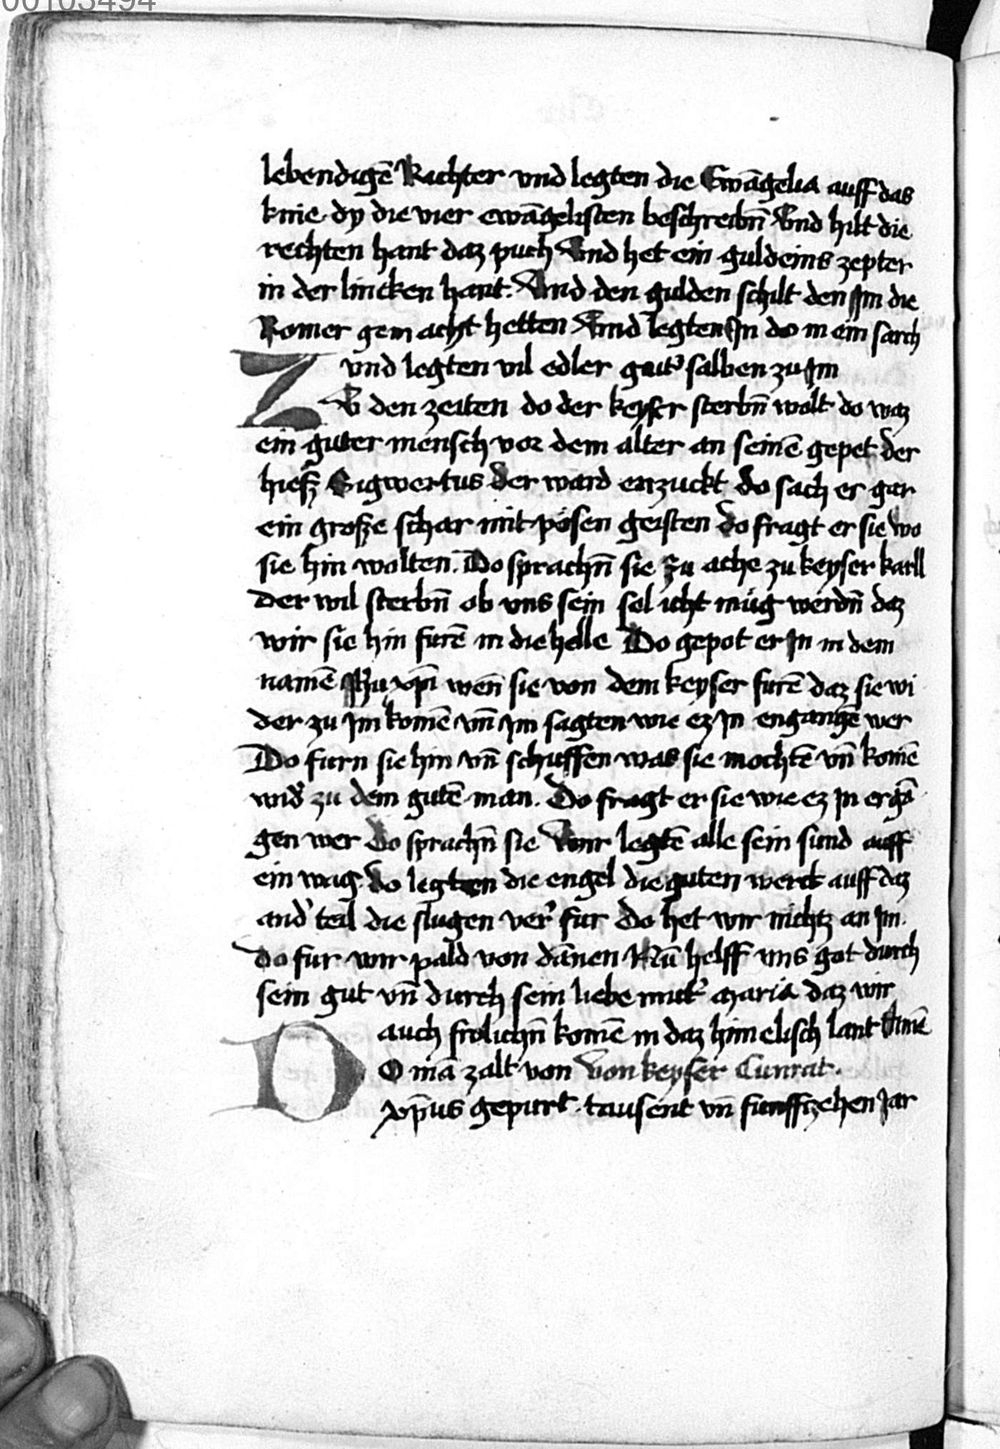 00103494
lebendigē Richter vnd legten die Ewāgelia auff das
knie dy die vier ewāgelisten beschreibn̄ Vnd hilt die
rechten hant daz puch Vnd het ein guldeins zepter
in der lincken hant. Vnd den gulden schilt den Jm die
Romer gemacht hetten Vnd legten Jn do in ein sarch
vnd legten vil edler gut' salben zu Jm
ZV den zeiten do der keyser sterbn̄ wolt do waz
ein guter mensch vor dem alter an seinē gepet der
hiesz Sigwertus der ward enzuckt do sach er gar
ein große schar mit pösen geisten do fragt er sie wo
sie hin wolten. Do sprachn̄ sie zu ache zu keyser karll
der wil sterbn̄ ob vns sein sel icht müg werdn̄ daz
wir sie hin furē in die helle Do gepot er Jn in dem
namē Jhu xpī wen̄ sie von dem keyser furē daz sie wi
der zu Jm komē vn̄ Jm sagten wie ez Jn engangē wer
Do furn sie hin vn̄ schuffen was sie mochtē vn̄ komē
wid' zu dem gutē man. Do fragt er sie wie ez Jn ergā
gen wer do sprachn̄ sie Wir legtē alle sein sund auff
ein wag do legten die engel die guten werck auff daz
and' teil die slugen ver' fur Do het wir nichtz an Jm.
Do fur wir pald von dānen Nū helff vns got durch
sein gut vn̄ durch sein liebe mut' Maria daz wir
auch frolichn̄ komē in daz himelisch lant Amē
DO mā zalt von Von keyser Cunrat.
xp̄us gepurt. tausent vn̄ funffzehen Jar